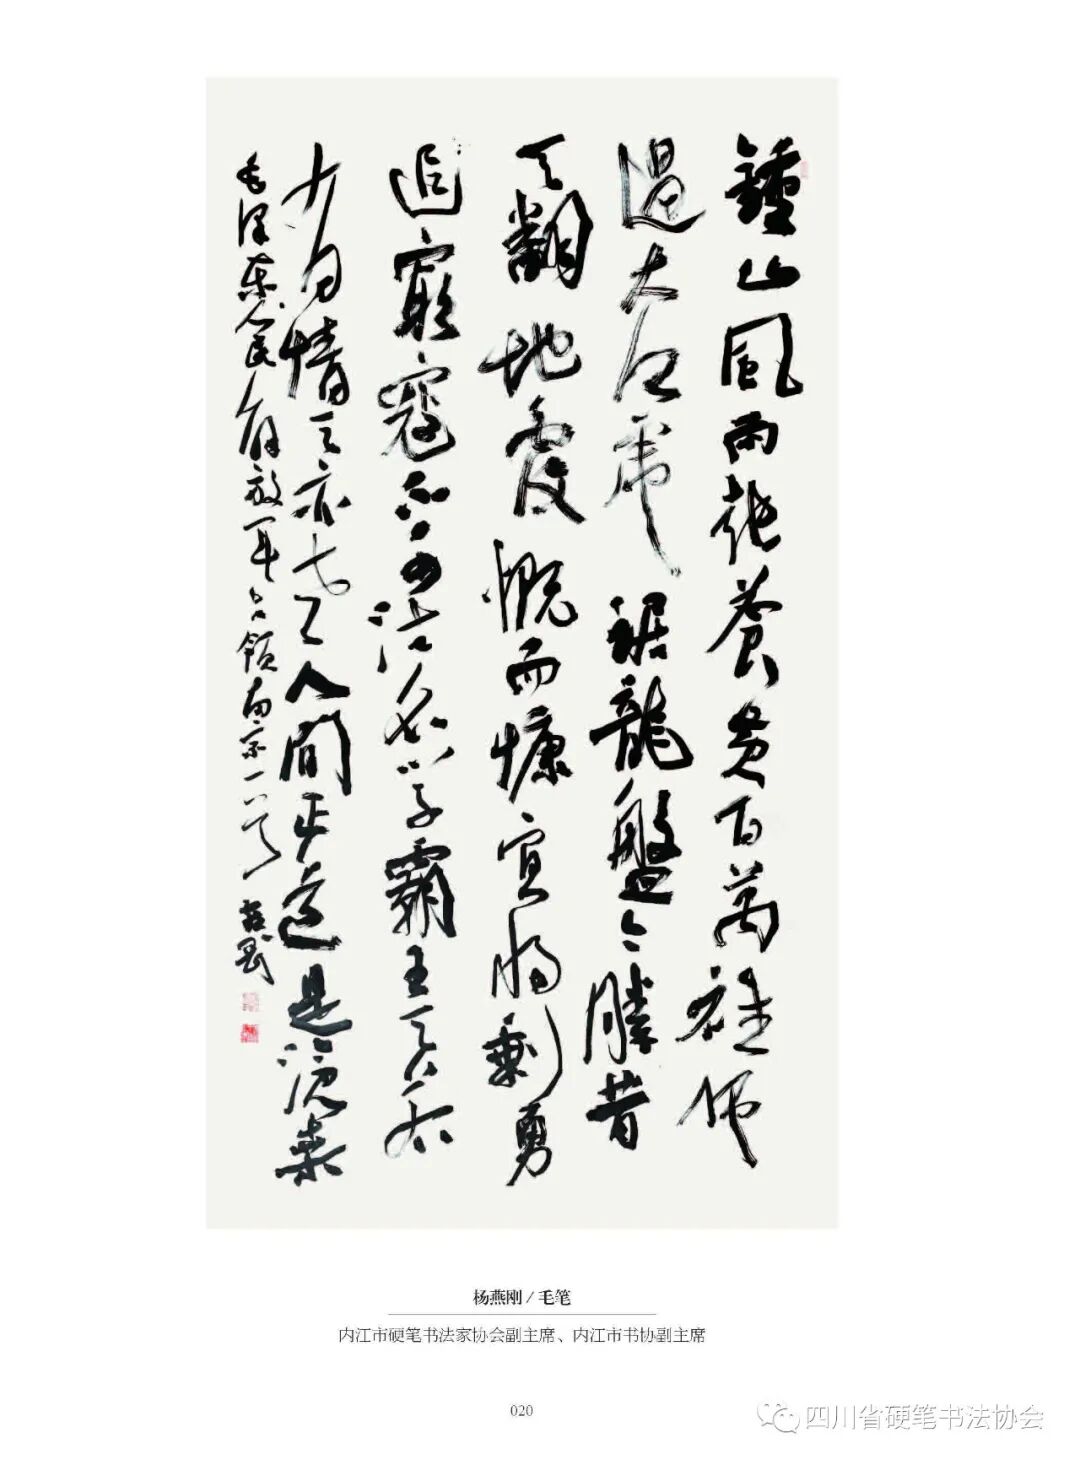 鍾山風雨起蒼黄百萬雄师
過大江虎踞龍盤今勝昔
天翻地覆慨而慷宜将剩勇
追窮寇不可沽名学霸王天若
有情天亦老人間正道是滄桑
毛泽东人民解放军占领南京一首 燕刚
杨燕刚 / 毛笔
内江市硬笔书法家协会副主席、内江市书协副主席
020
四川省硬笔书法协会